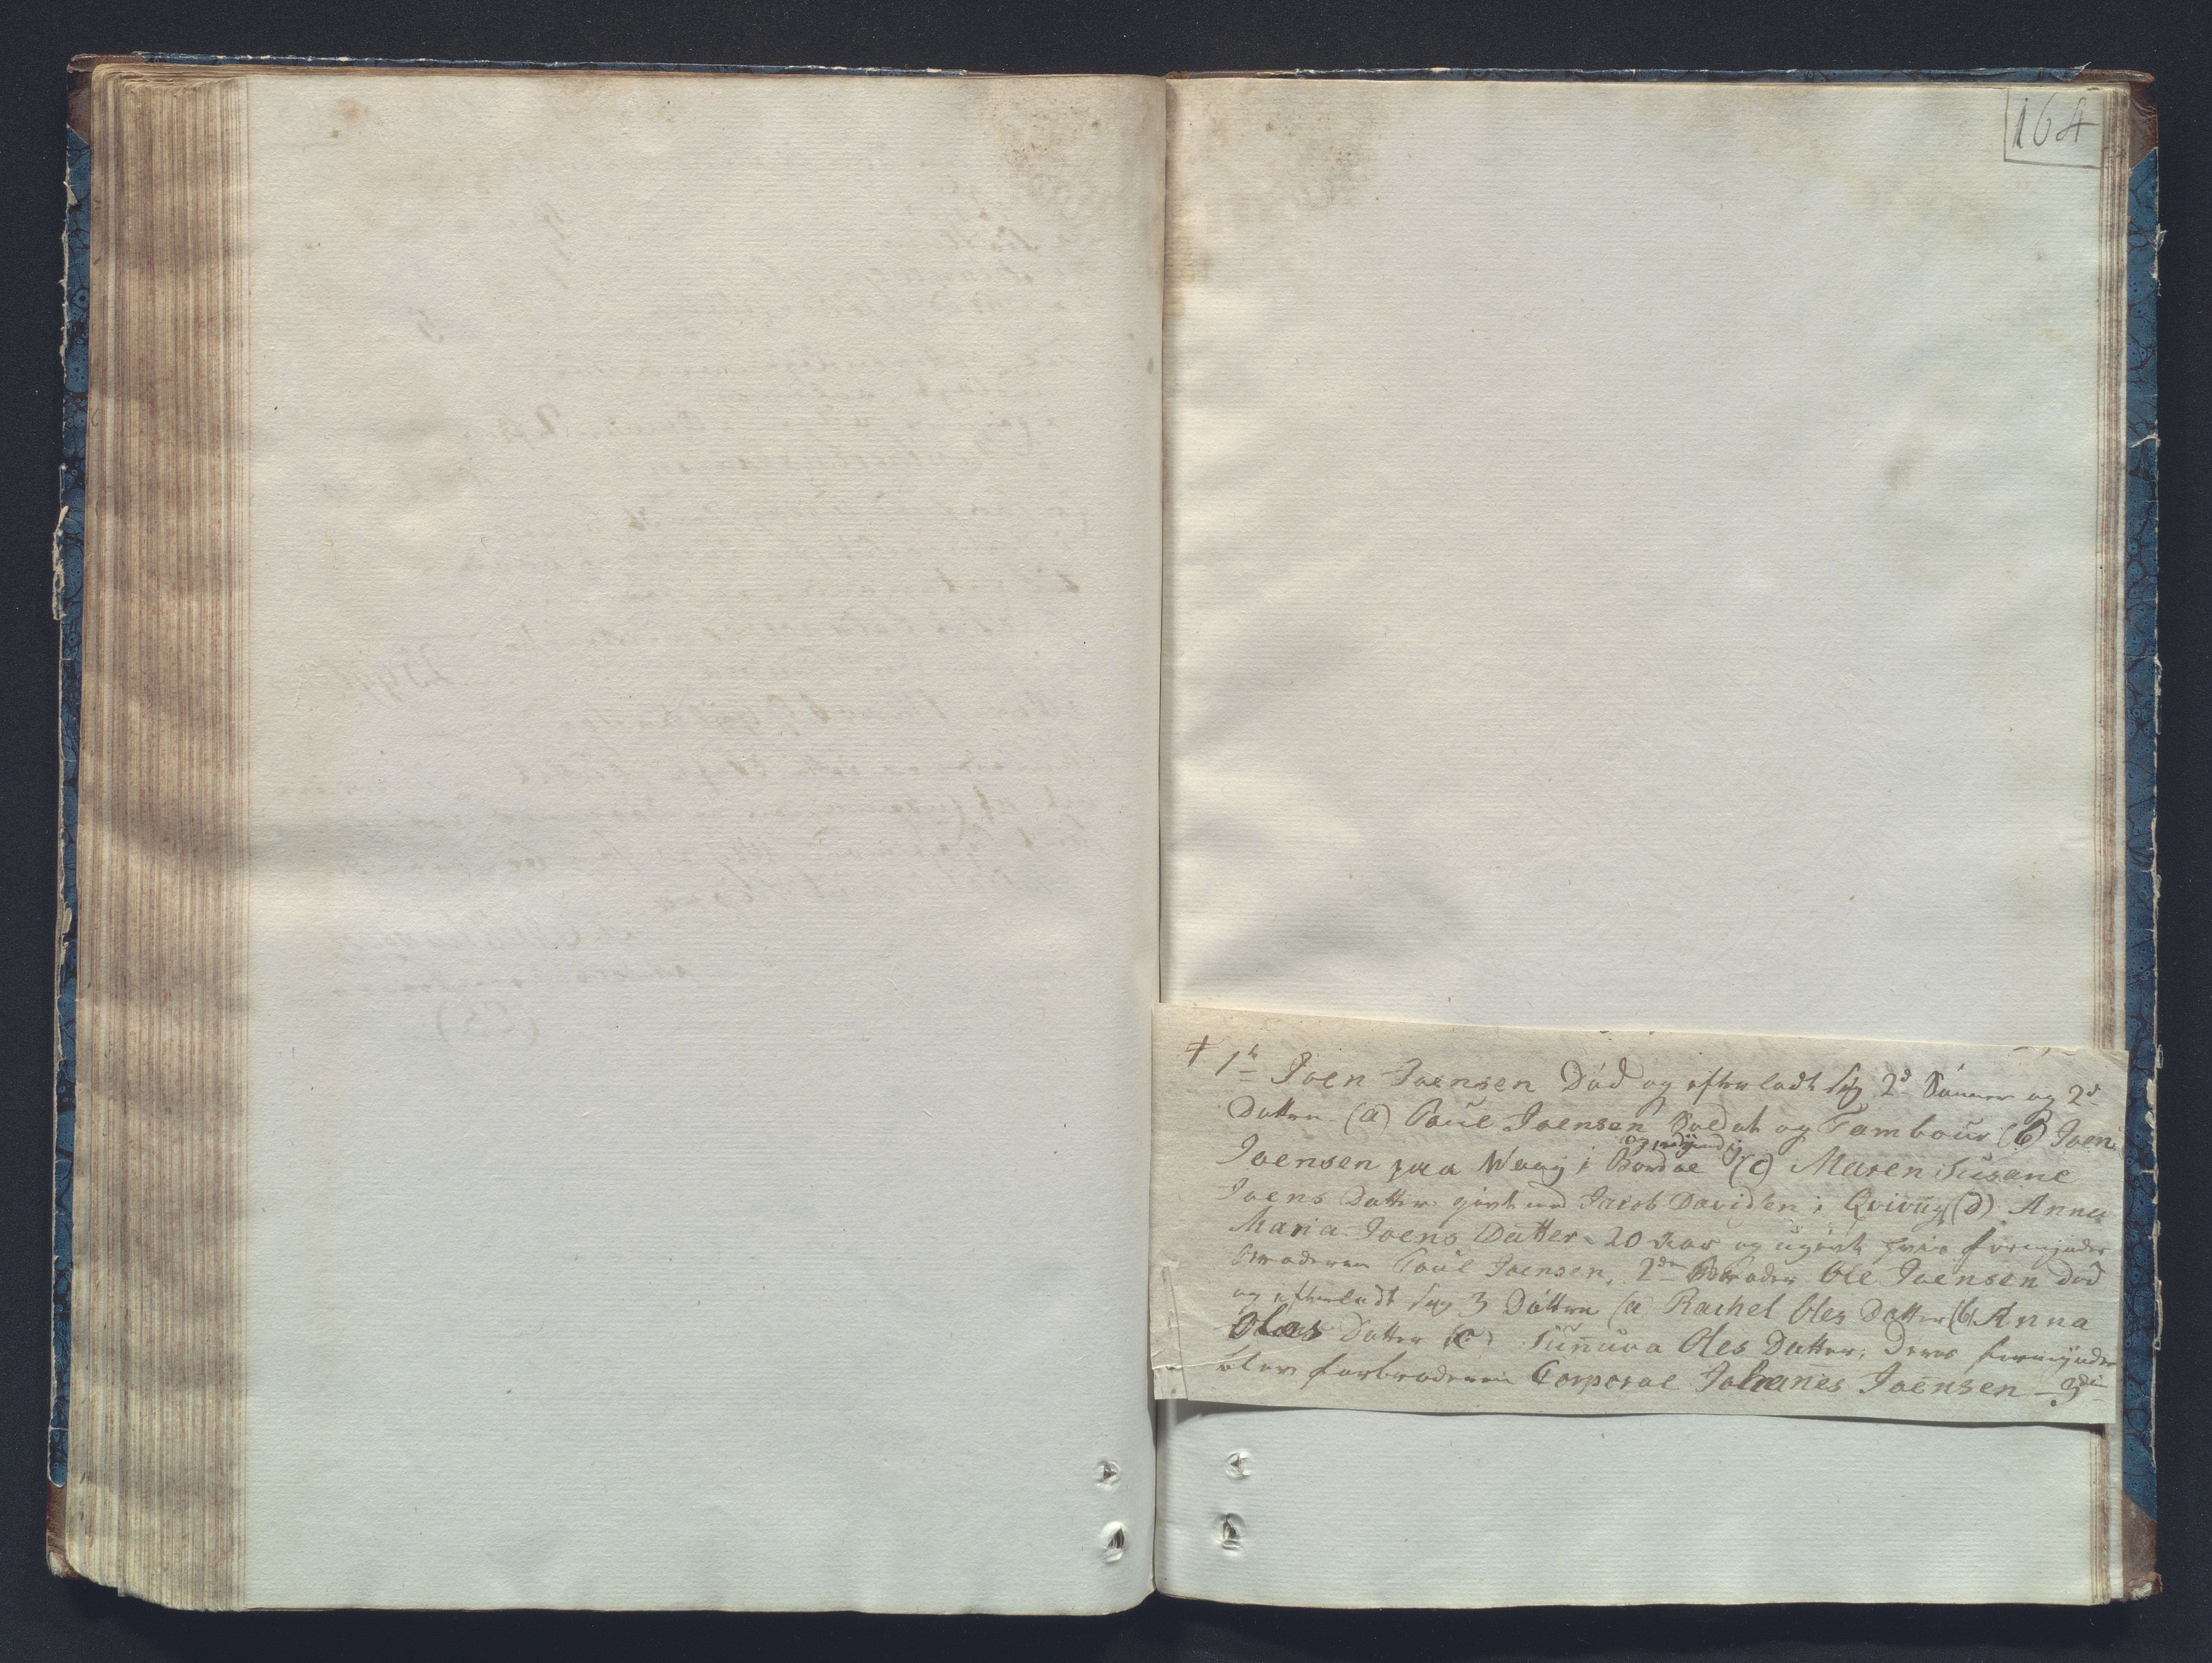 164
† 1te Joen Joensen Död og efterladt sig 2de Sönner og 2de
Döttre (a) Poul Joensen Soldat og Tambour (b) Joen
Joensen paa Waag i Bordoe (og myndig) (c) Maren Susane
Joens Datter givt med Jacob Davidsen i Qvivüg (d) Anna
Maria Joens Datter 20 Aar og ugivt hvis formynder
Broderen Poul Joensen, 2den Broder Ole Joensen död
og efterladt sig 3 Döttre (a) Rachel Oles Datter (b) Anna
Oles Datter (c) Sunnuva Oles Datter; Deres formynder
blev farbroderen Corporal Johannes Joensen – 3die